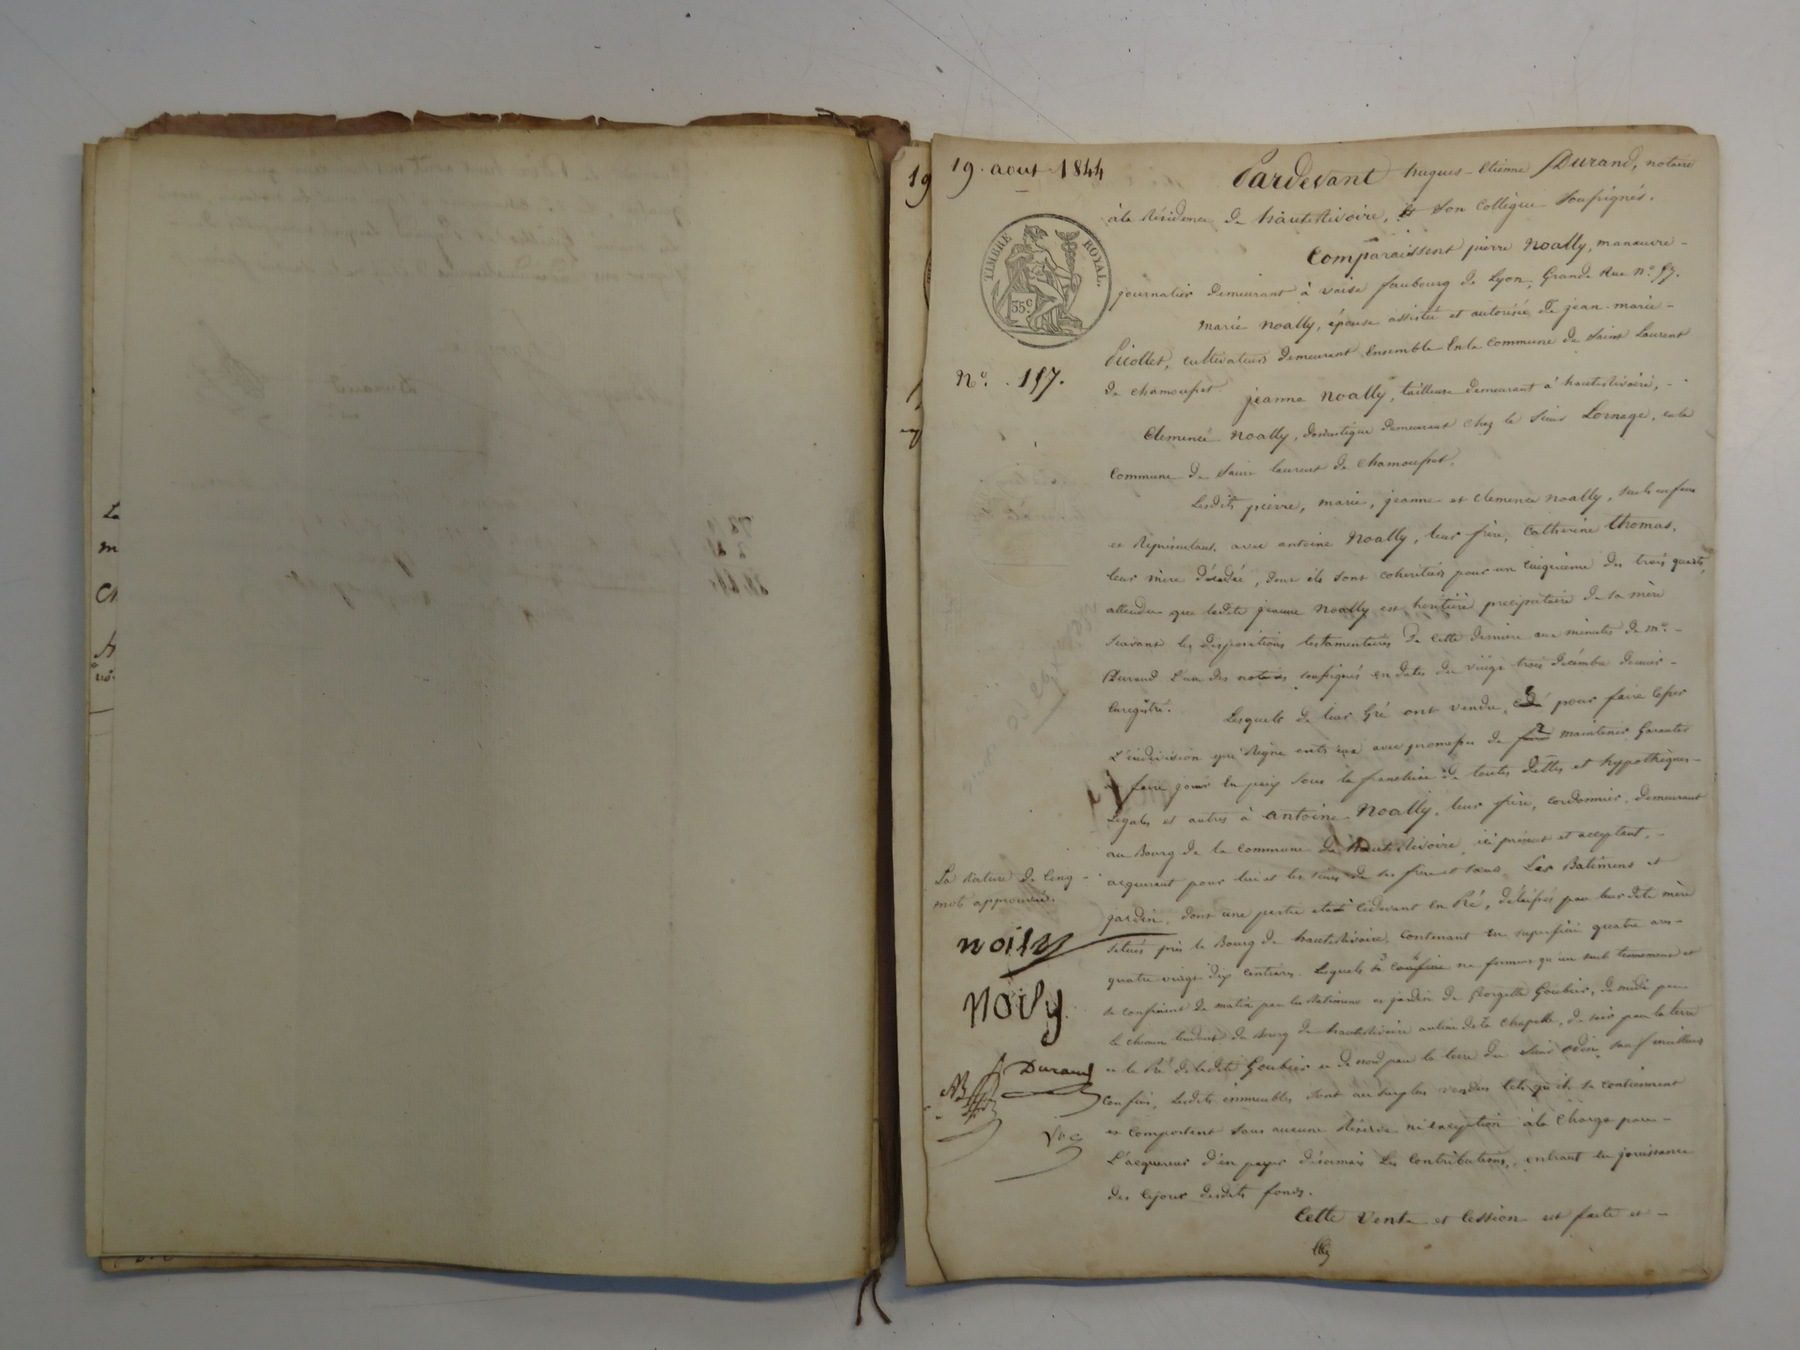 19. aout 1844
Pardevant hugues-Etienne Durand, notaire
à la Résidence de hauterivoire, et son Collègue Soussignés.
Comparaissent pierre Noally, manœuvre-
TIMBRE ROYAL.
35.c
journalier demeurant à vaise faubourg de Lyon, Grande Rue n.o 57.
marie Noally, épouse assistée et autorisée de jean-marie-
Picollet, cultivateurs demeurant Ensemble En la commune de Saint Laurent
N.o 157.
de chamousset jeanne Noally, tailleuse demeurant à hauterivoire,-
Clemence Noally, domestique demeurant chez le Sieur Lornage, en la
Commune de Saint laurent de Chamousset.
Lesdits pierre, marie, jeanne et clemence Noally, seuls enfans
et Représentant, avec antoine Noally, leur frère, Catherine thomas,
leur mère décédée, dont ils sont coheritiers pour un cinquième des trois quarts,
attendu que ladite jeanne Noally est heritière precipuitaire de sa mère
Suivant les dispositions testamentaires de cette dernière aux minutes de m.e-
Durand L'un des notaires soussignés en date du vingt trois décembre dernier-
Enregistré. Lesquels de leur Gré ont vendu, cédé pour faire cesser
L'indivision qui Règne entr'eux avec promesse de maintenir Garantir
faire jouir En paix sous la franchise de toutes dettes et hypothèques-
Légales et autres à antoine Noally, leur frère, cordonnier, demeurant
au Bourg de la Commune de hauterivoire, ici présent et acceptant,-
acquerant pour lui et les siens de ses frere et sœurs Les Batimens et
La Rature de Cinq-
mots approuvée.
jardin, dont une partie etait cidevant En Pré, délaissés par leur dite mère
noily
situés près le Bourg de hauterivoire, Contenant En superficie quatre ares-
quatre vingt dix centiares. Lesquels ne forment qu'un seul tennement et
Noily
se confinent de matin par les Batimens et jardin de Georgette Goubier, de midi par
Le chemin tendant du Bourg de hauterivoire au lieu de la Chapelle, de soir par la terre
Durand
et le Pré de ladite Goubier et de nord par la terre du Sieur odin, sauf meilleurs
confins, Lesdits immeubles sont au surplus vendus tels qu'ils se contiennent
et comportent sans aucune Réserve ni exception à la Charge par-
L'acquereur d'en payer désormais Les Contributions, entrant en jouissance
dès Cejour desdits fonds.
Cette Vente et Cession est faite et-